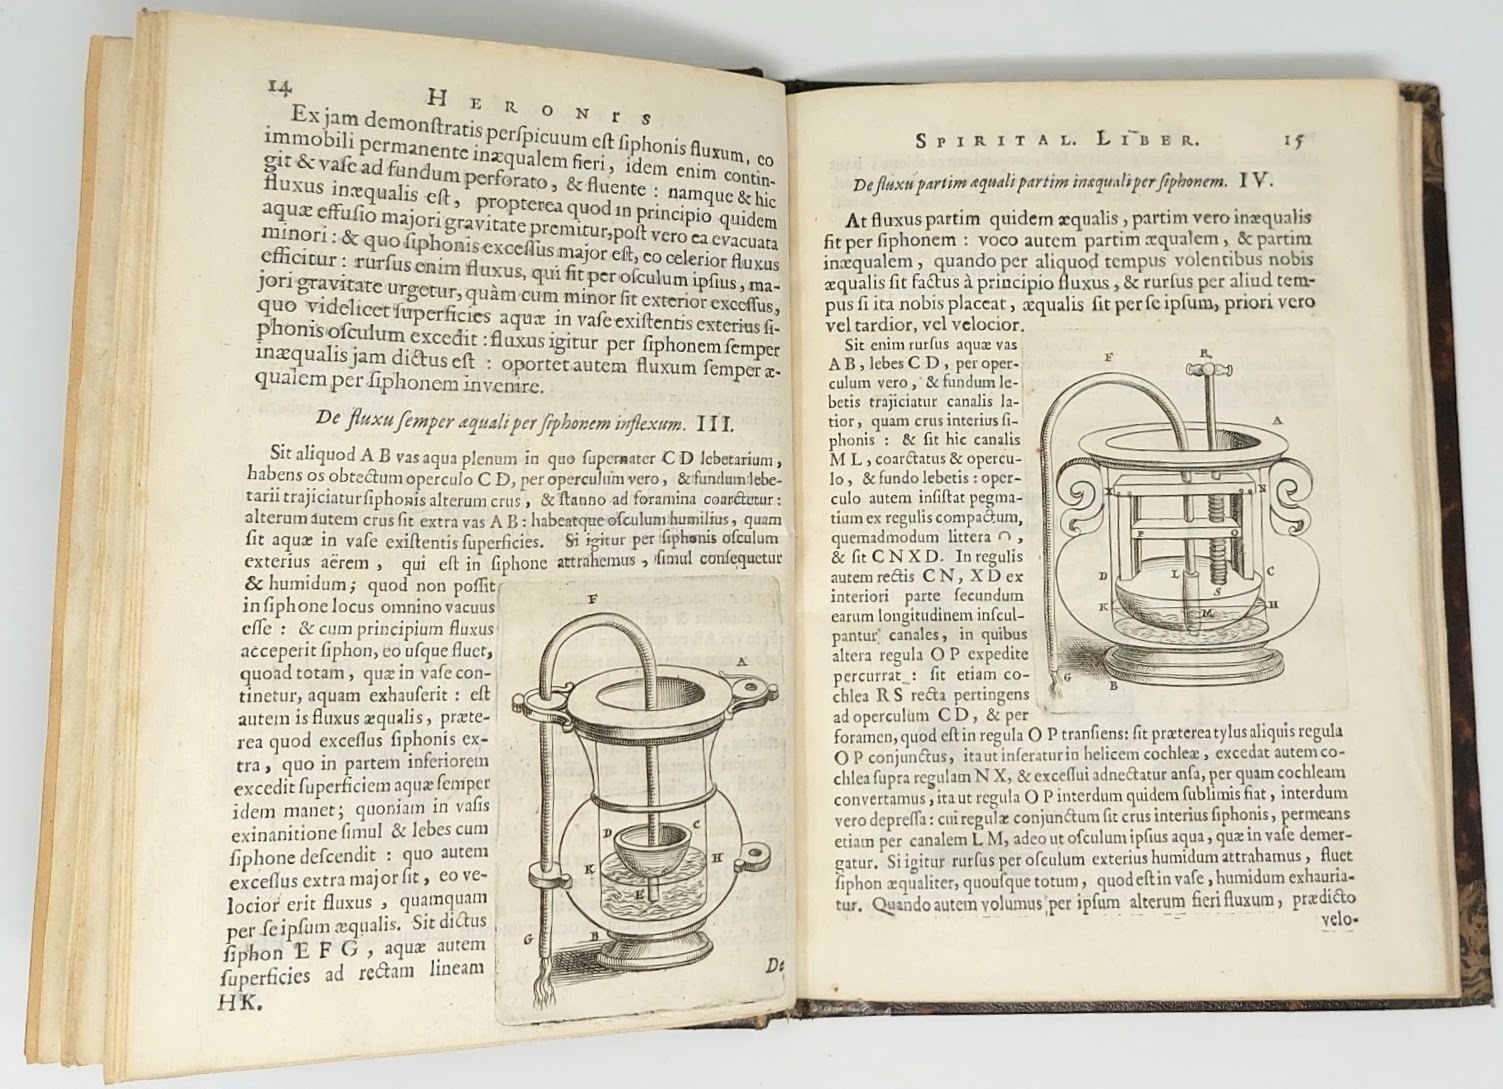 14
HERONIS
Ex jam demonſtratis perſpicuum eſt ſiphonis fluxum, eo
immobili permanente inæqualem fieri, idem enim contin-
git & vaſe ad fundum perforato, & fluente : namque & hic
fluxus inæqualis eſt, propterea quod in principio quidem
aquæ effuſio majori gravitate premitur, poſt vero ea evacuata
minori : & quo ſiphonis exceſſus major eſt, eo celerior fluxus
efficitur : rurſus enim fluxus, qui fit per oſculum ipſius, ma-
jori gravitate urgetur, quàm cum minor ſit exterior exceſſus,
quo videlicet ſuperficies aquæ in vaſe exiſtentis exterius ſi-
phonis oſculum excedit : fluxus igitur per ſiphonem ſemper
inæqualis jam dictus eſt : oportet autem fluxum ſemper æ-
qualem per ſiphonem invenire.
De fluxu ſemper æquali per ſiphonem inflexum. III.
Sit aliquod A B vas aqua plenum in quo ſupernater C D lebetarium,
habens os obtectum operculo C D, per operculum vero, & fundum lebe-
tarii trajiciatur ſiphonis alterum crus, & ſtanno ad foramina coarctetur :
alterum autem crus ſit extra vas A B : habeatque oſculum humilius, quam
ſit aquæ in vaſe exiſtentis ſuperficies. Si igitur per ſiphonis oſculum
exterius aërem, qui eſt in ſiphone attrahemus, ſimul conſequetur
& humidum; quod non poſſit
in ſiphone locus omnino vacuus
eſſe : & cum principium fluxus
acceperit ſiphon, eo uſque fluet,
quoad totam, quæ in vaſe con-
tinetur, aquam exhauſerit : eſt
autem is fluxus æqualis, præte-
rea quod exceſſus ſiphonis ex-
tra, quo in partem inferiorem
excedit ſuperficiem aquæ ſemper
idem manet; quoniam in vaſis
exinanitione ſimul & lebes cum
ſiphone deſcendit : quo autem
exceſſus extra major ſit, eo ve-
locior erit fluxus, quamquam
per ſe ipſum æqualis. Sit dictus
ſiphon E F G, aquæ autem
ſuperficies ad rectam lineam
HK.
F
A
D
C
K
H
E
G
B
De
SPIRITAL. LIBER.
15
De fluxu partim æquali partim inæquali per ſiphonem. IV.
At fluxus partim quidem æqualis, partim vero inæqualis
fit per ſiphonem : voco autem partim æqualem, & partim
inæqualem, quando per aliquod tempus volentibus nobis
æqualis ſit factus à principio fluxus, & rurſus per aliud tem-
pus ſi ita nobis placeat, æqualis ſit per ſe ipſum, priori vero
vel tardior, vel velocior.
Sit enim rurſus aquæ vas
A B, lebes C D, per oper-
culum vero, & fundum le-
betis trajiciatur canalis la-
tior, quam crus interius ſi-
phonis : & ſit hic canalis
M L, coarctatus & opercu-
lo, & fundo lebetis : oper-
culo autem inſiſtat pegma-
tium ex regulis compactum,
quemadmodum littera ∩,
& ſit C N X D. In regulis
autem rectis C N, X D ex
interiori parte ſecundum
earum longitudinem inſcul-
pantur canales, in quibus
altera regula O P expedite
percurrat : ſit etiam co-
chlea R S recta pertingens
ad operculum C D, & per
foramen, quod eſt in regula O P tranſiens: ſit præterea tylus aliquis regula
O P conjunctus, ita ut inſeratur in helicem cochleæ, excedat autem co-
chlea ſupra regulam N X, & exceſſui adnectatur anſa, per quam cochleam
convertamus, ita ut regula O P interdum quidem ſublimis fiat, interdum
vero depreſſa : cui regulæ conjunctum ſit crus interius ſiphonis, permeans
etiam per canalem L M, adeo ut oſculum ipſius aqua, quæ in vaſe demer-
gatur. Si igitur rurſus per oſculum exterius humidum attrahamus, fluet
ſiphon æqualiter, quouſque totum, quod eſt in vaſe, humidum exhauria-
tur. Quando autem volumus per ipſum alterum fieri fluxum, prædicto
velo-
F
R
A
X
N
P
O
D
L
C
S
K
M
H
G
B